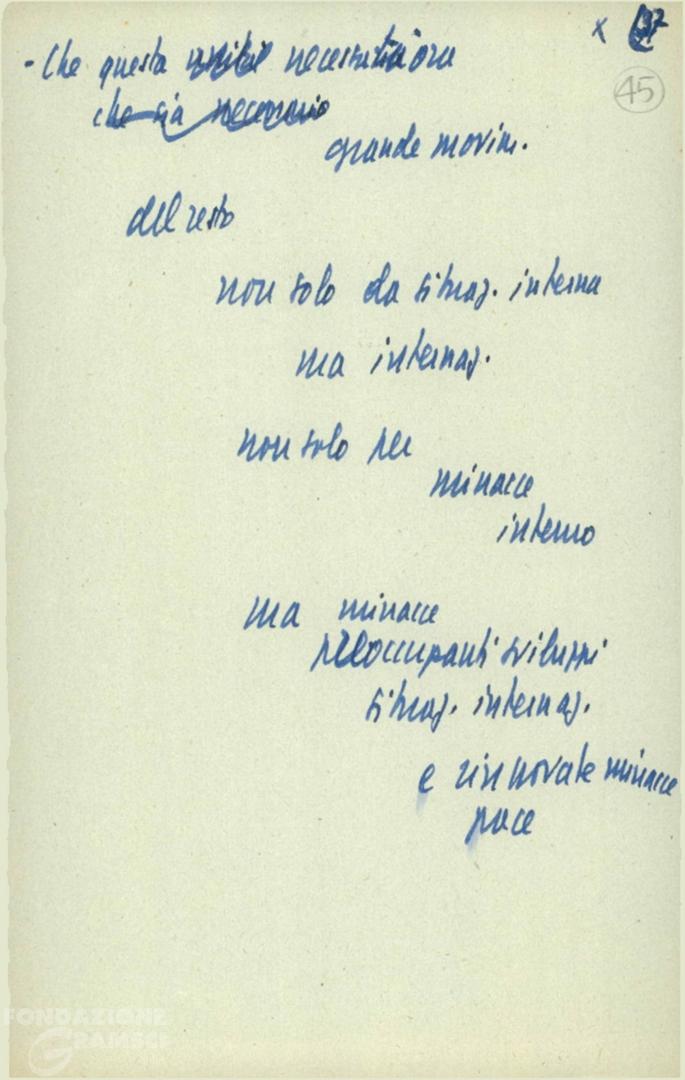 x 37
45
- Che questa necessaria ora
che sia necessario
grande movim.
del resto
non solo da situaz. interna
ma internaz.
non solo per
minacce
interno
ma minacce
preoccupanti sviluppi
situaz. internaz.
e rinnovate minacce
pace
FONDAZIONE
GRAMSCI